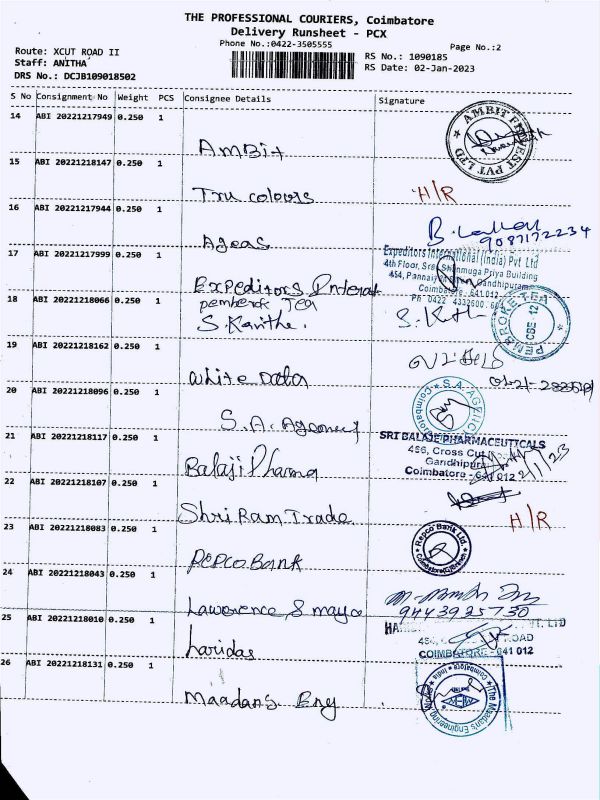 THE PROFESSIONAL COURIERS, Coimbatore
Delivery Runsheet - PCX
Phone No.:0422-3505555
Page No.:2
Route: XCUT ROAD II
Staff: ANITHA
DRS No.: DCJB109018502
RS No.: 1090185
RS Date: 02-Jan-2023
S No Consignment No Weight PCS Consignee Details Signature
14 ABI 20221217949 0.250 1
AMBIT PVT LTD
Ambit
15 ABI 20221218147 0.250 1
Tru colours H/R
16 ABI 20221217944 0.250 1
Ageas
9087172234
17 ABI 20221217999 0.250 1
Expeditors International (India) Pvt Ltd
4th Floor, Sree Shanmuga Priya Building
454, Gandhipuram
Coimbatore 641 012
Ph 0422
Expeditors
18 ABI 20221218066 0.250 1
Tea
S. Kavitha.
PEMBROKE TEA CBE 12
19 ABI 20221218162 0.250 1
White Data
20 ABI 20221218096 0.250 1
S.A. AGENCY Coimbatore
S.A.
21 ABI 20221218117 0.250 1
SRI BALAJE PHARMACEUTICALS
456, Cross Cut
Gandhipuram
Coimbatore - 641 012
2/1/23
Balaji Pharma
22 ABI 20221218107 0.250 1
Shri Ram Trade H/R
23 ABI 20221218083 0.250 1
Repco Bank Ltd.
REPCO BANK
24 ABI 20221218043 0.250 1
Lawerence & mayo
9443925730
25 ABI 20221218010 0.250 1
PVT. LTD
ROAD
COIMBATORE - 641 012
haridas
26 ABI 20221218131 0.250 1
The Maadan's Engineering Works
Coimbatore India
Maadan's Eng